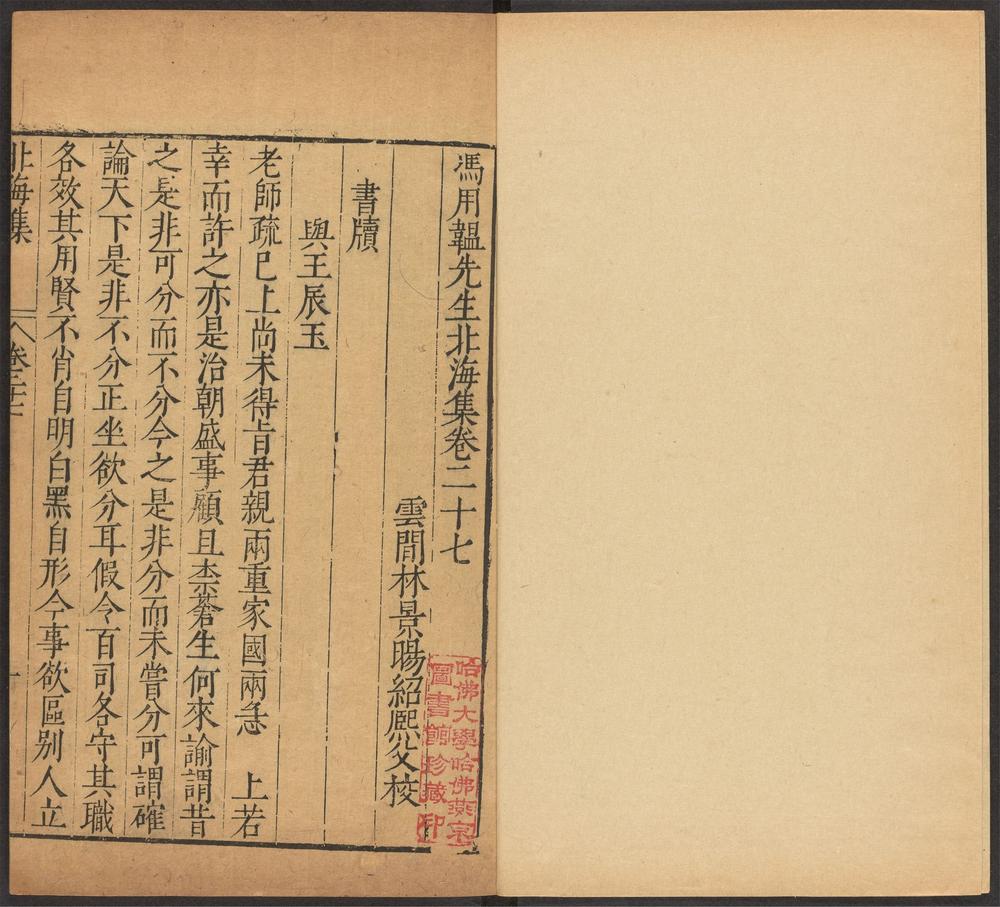 馮用韞先生北海集卷二十七
雲間林景暘紹熙父校
書牘
與王辰玉
老師疏已上尚未得旨君親兩重家國兩急　上若
幸而許之亦是治朝盛事顧且柰蒼生何來諭謂昔
之是非可分而不分今之是非分而未嘗分可謂確
論天下是非不分正坐欲分耳假令百司各守其職
各效其用賢不肖自明白黑自形今事欲區別人立
北海集　卷二十七　一
哈佛大學哈佛燕京
圖書館珍藏印